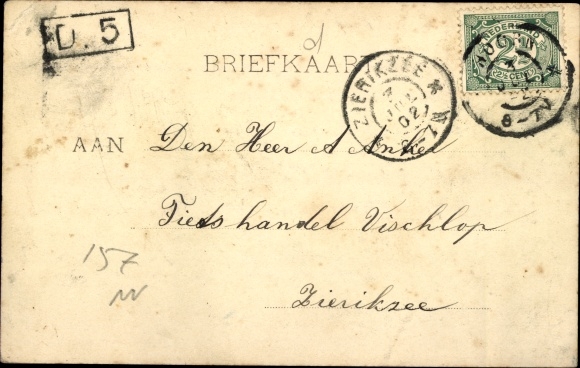 D. 5
d
BRIEFKAART
NEDERLAND
2½
(2½ CENT)
ZIERIKZEE
4
JUL
02
8-
AAN Den Heer A Anker
Fietshandel Vischlop
Zierikzee
157